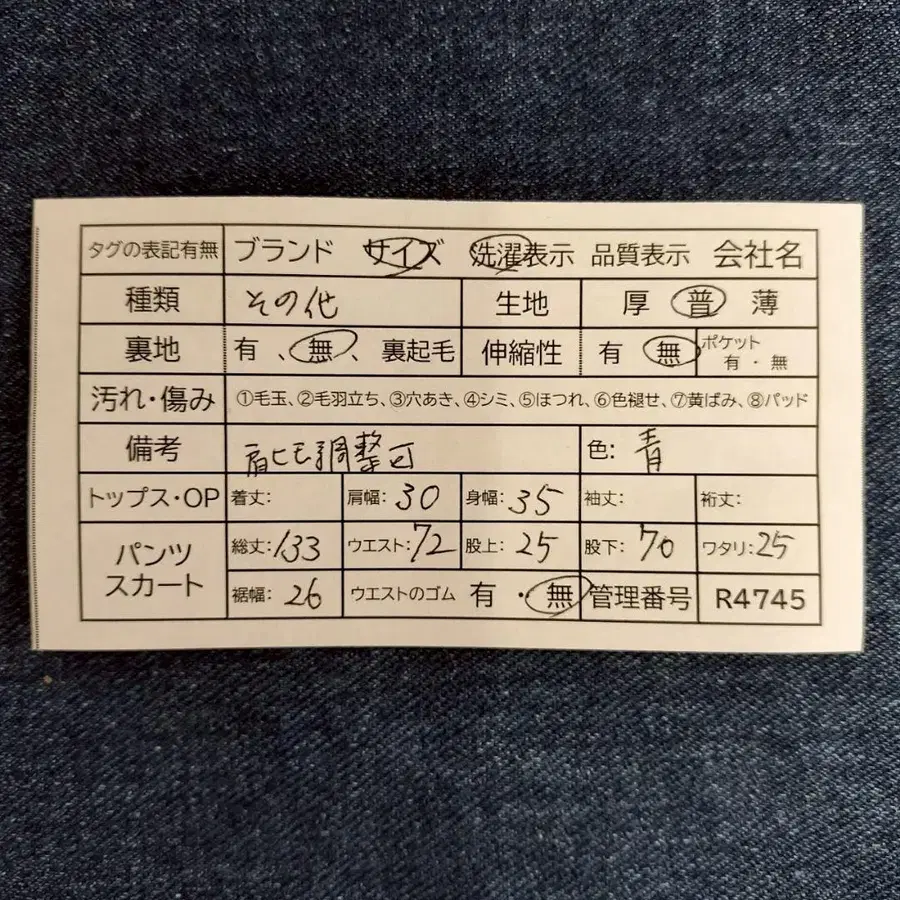 タグの表記有無 ブランド サイズ 洗濯表示 品質表示 会社名
種類 その他 生地 厚 普 薄
裏地 有 、 無 、 裏起毛 伸縮性 有 無 ポケット 有 ・ 無
汚れ・傷み ①毛玉、②毛羽立ち、③穴あき、④シミ、⑤ほつれ、⑥色褪せ、⑦黄ばみ、⑧パッド
備考 肩ヒモ調整可 色: 青
トップス・OP 着丈: 肩幅: 30 身幅: 35 袖丈: 裄丈:
パンツ スカート 総丈: 133 ウエスト: 72 股上: 25 股下: 70 ワタリ: 25
裾幅: 26 ウエストのゴム 有 ・ 無 管理番号 R4745